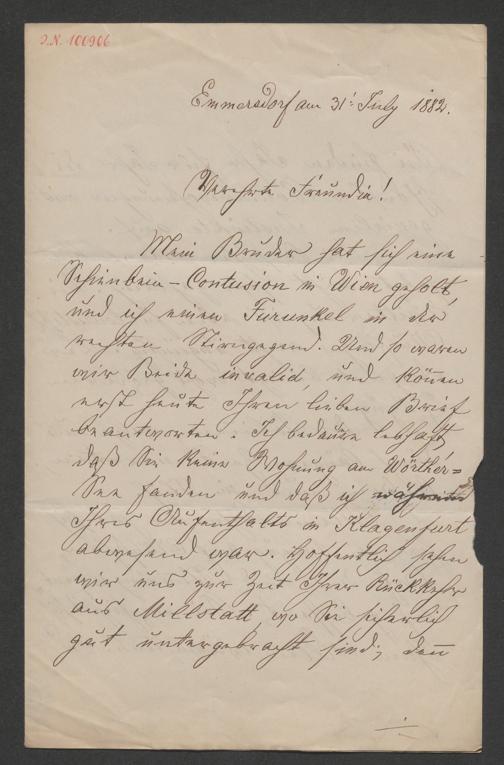 J.N. 100906
Emmersdorf am 31t July 1882.
Verehrte Freundin!
Mein Bruder hat sich eine
Schienbein-Contusion in Wien geholt,
und ich einen Furunkel in der
rechten Stirngegend. Und so waren
wir Beide invalid, und können
erst heute Ihren lieben Brief
beantworten. Ich bedaure lebhaft
daß Sie keine Wohnung am Wörther=
See fanden und daß ich während
Ihres Aufenthalts in Klagenfurt
abwesend war. Hoffentlich sehen
wir uns zur Zeit Ihrer Rückkehr
aus Millstatt, wo Sie sicherlich
gut untergebracht sind; denn